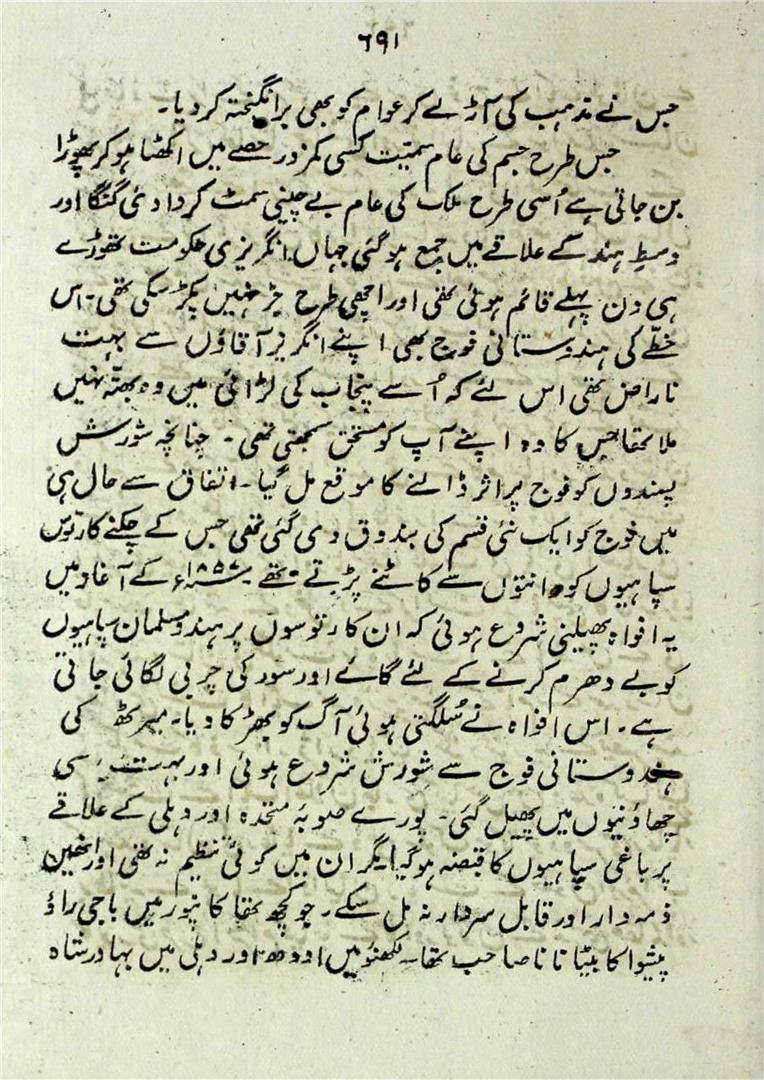 ۶۹۱
جس نے مذہب کی آڑ لے کر عوام کو بھی برانگیختہ کر دیا۔
جس طرح جسم کی عام سمیّت کسی کمزور حصے میں اکھٹا ہو کر پھوڑا
بن جاتی ہے اُسی طرح ملک کی عام بے چینی سمٹ کر وادیٔ گنگا اور
وسطِ ہند کے علاقے میں جمع ہو گئی جہاں انگریزی حکومت تھوڑے
ہی دن پہلے قائم ہوئی تھی اور اچھی طرح جڑ نہیں پکڑ سکی تھی۔ اس
خطّے کی ہندوستانی فوج بھی اپنے انگریز آقاؤں سے بہت
ناراض تھی اس لئے کہ اُسے پنجاب کی لڑائی میں وہ بھتّہ نہیں
ملا تھا جس کا وہ اپنے آپ کو مستحق سمجھتی تھی۔ چنانچہ شورش
پسندوں کو فوج پر اثر ڈالنے کا موقع مل گیا۔ اتفاق سے حال ہی
میں فوج کو ایک نئی قسم کی بندوق دی گئی تھی جس کے چکنے کارتوس
سپاہیوں کو دانتوں سے کاٹنے پڑتے تھے۔ ۱۸۵۷ء کے آغاز میں
یہ افواہ پھیلنی شروع ہوئی کہ ان کارتوسوں پر ہندو مسلمان سپاہیوں
کو بے دھرم کرنے کے لئے گائے اور سور کی چربی لگائی جاتی
ہے۔ اس افواہ نے سُلگتی ہوئی آگ کو بھڑکا دیا۔ میرٹھ کی
ہندوستانی فوج سے شورش شروع ہوئی اور بہت سی
چھاؤنیوں میں پھیل گئی۔ پورے صوبۂ متحدہ اور دہلی کے علاقے
پر باغی سپاہیوں کا قبضہ ہو گیا مگر ان میں کوئی تنظیم نہ تھی اور انھیں
ذمہ دار اور قابل سردار نہ مل سکے۔ جو کچھ تھا کانپور میں باجی راؤ
پیشوا کا بیٹا نانا صاحب تھا۔ لکھنؤ میں اودھ اور دہلی میں بہادر شاہ